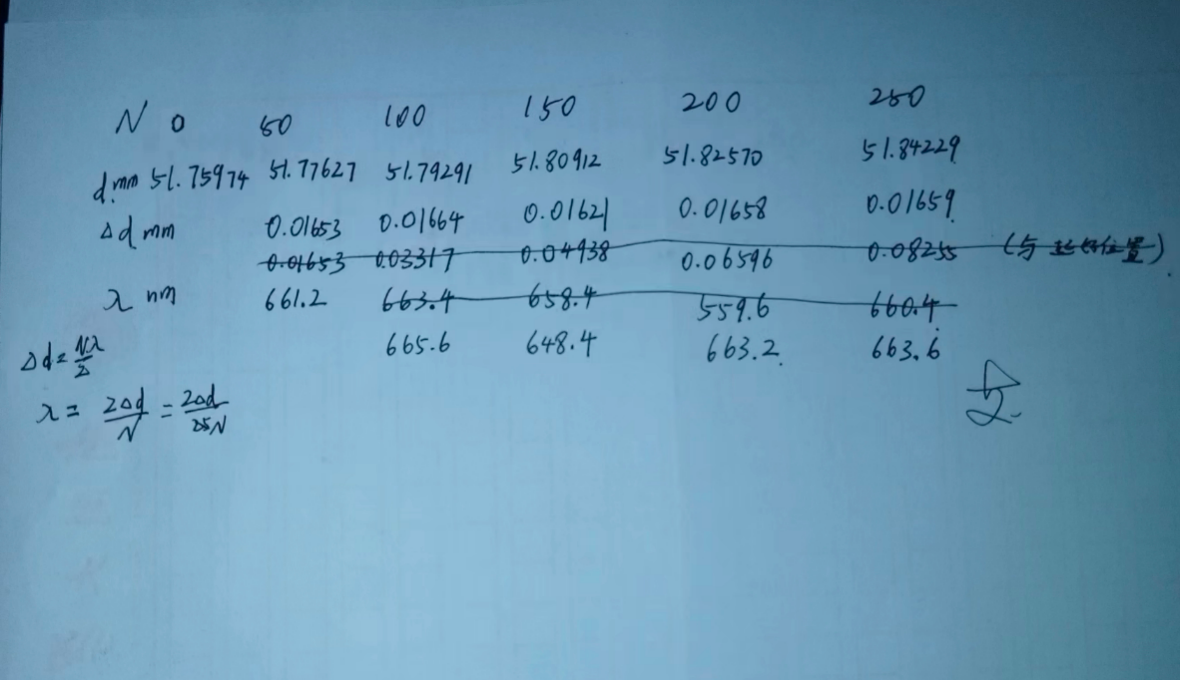 N 0 50 100 150 200 250
d mm 51.75974 51.77627 51.79291 51.80912 51.82570 51.84229
Δd mm 0.01653 0.01664 0.01621 0.01658 0.01659
0.01653 0.03317 0.04938 0.06596 0.08255 (与起始位置)
λ nm 661.2 663.4 658.4 559.6 660.4
665.6 648.4 663.2 663.6
Δd=Nλ/2
λ = 2Δd/N = 2Δd/25N